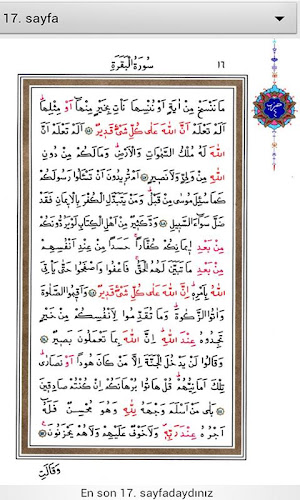 17. sayfa
سُورَةُ الْبَقَرَةِ ١٦
مَا نَنْسَخْ مِنْ اٰيَةٍ اَوْ نُنْسِهَا نَأْتِ بِخَيْرٍ مِنْهَٓا اَوْ مِثْلِهَاۜ
اَلَمْ تَعْلَمْ اَنَّ اللّٰهَ عَلٰى كُلِّ شَيْءٍ قَدِيرٌ ۝ اَلَمْ تَعْلَمْ اَنَّ
اللّٰهَ لَهُ مُلْكُ السَّمٰوَاتِ وَالْاَرْضِۜ وَمَا لَكُمْ مِنْ دُونِ
اللّٰهِ مِنْ وَلِيٍّ وَلَا نَصِيرٍ ۝ اَمْ تُرِيدُونَ اَنْ تَسْـَٔلُوا رَسُولَكُمْ
كَمَا سُئِلَ مُوسٰى مِنْ قَبْلُۜ وَمَنْ يَتَبَدَّلِ الْكُفْرَ بِالْاِيمَانِ فَقَدْ
ضَلَّ سَوَٓاءَ السَّبِيلِ ۝ وَدَّ كَثِيرٌ مِنْ اَهْلِ الْكِتَابِ لَوْ يَرُدُّونَكُمْ
مِنْ بَعْدِ اِيمَانِكُمْ كُفَّارًاۚ حَسَدًا مِنْ عِنْدِ اَنْفُسِهِمْ
مِنْ بَعْدِ مَا تَبَيَّنَ لَهُمُ الْحَقُّۚ فَاعْفُوا وَاصْفَحُوا حَتّٰى يَأْتِيَ
اللّٰهُ بِاَمْرِهۜ اِنَّ اللّٰهَ عَلٰى كُلِّ شَيْءٍ قَدِيرٌ ۝ وَاَقِيمُوا الصَّلٰوةَ
وَاٰتُوا الزَّكٰوةَۜ وَمَا تُقَدِّمُوا لِاَنْفُسِكُمْ مِنْ خَيْرٍ
تَجِدُوهُ عِنْدَ اللّٰهِۜ اِنَّ اللّٰهَ بِمَا تَعْمَلُونَ بَصِيرٌ ۝
وَقَالُوا لَنْ يَدْخُلَ الْجَنَّةَ اِلَّا مَنْ كَانَ هُودًا اَوْ نَصَارٰىۜ
تِلْكَ اَمَانِيُّهُمْۜ قُلْ هَاتُوا بُرْهَانَكُمْ اِنْ كُنْتُمْ صَادِقِينَ
۝ بَلٰى مَنْ اَسْلَمَ وَجْهَهُ لِلّٰهِ وَهُوَ مُحْسِنٌ فَلَهُٓ
اَجْرُهُ عِنْدَ رَبِّهۖ وَلَا خَوْفٌ عَلَيْهِمْ وَلَا هُمْ يَحْزَنُونَ ۝
وَقَالَتِ
En son 17. sayfadaydınız